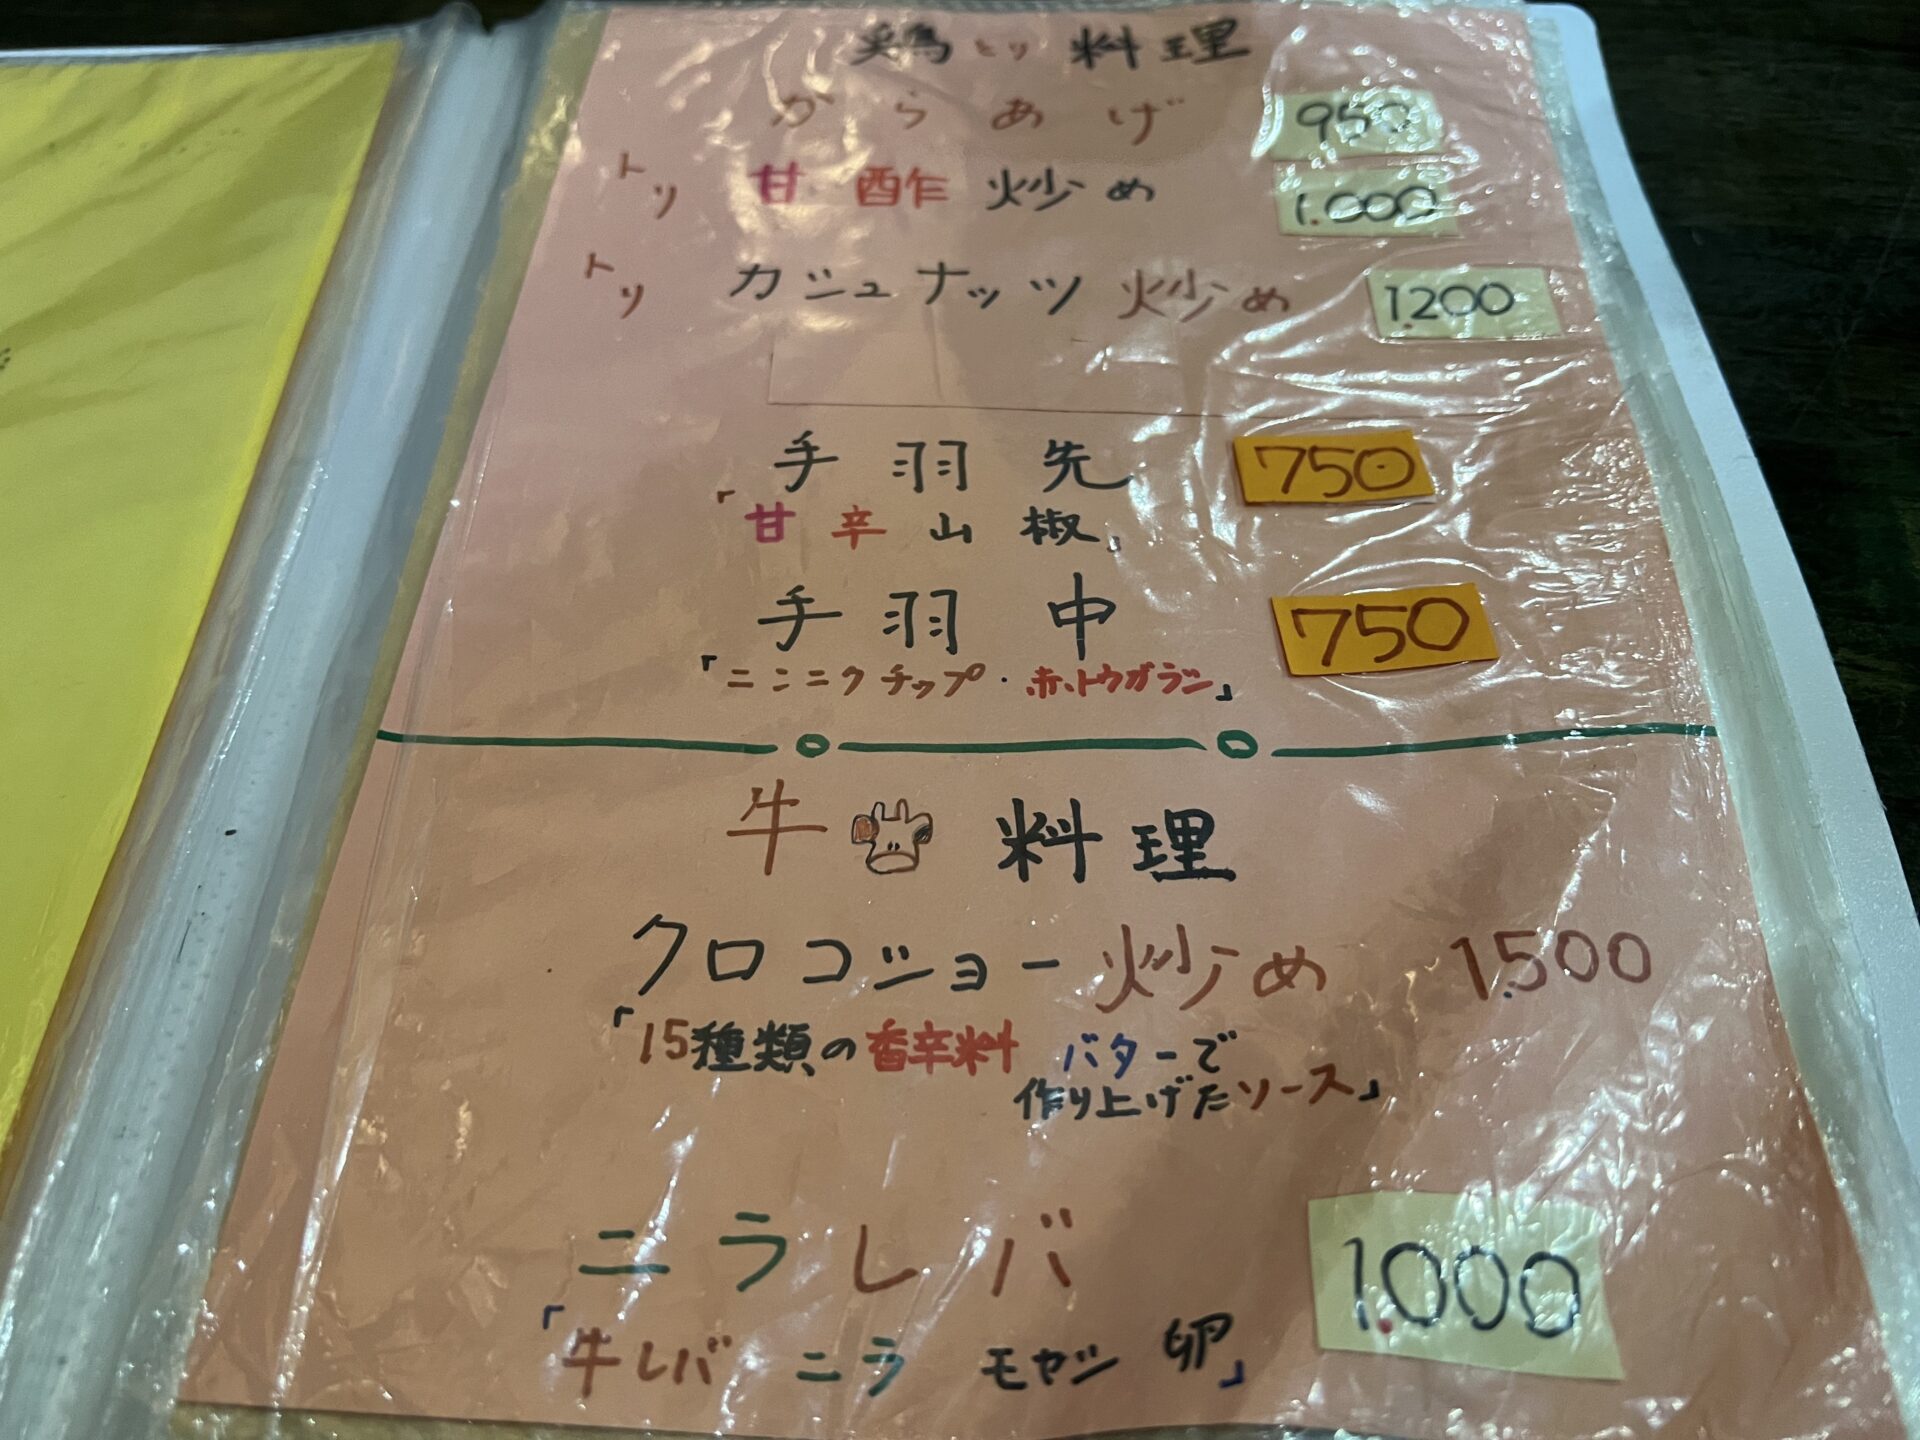 鶏とり料理
からあげ 950
トリ 甘酢炒め 1.000
トリ カシューナッツ炒め 1.200
手羽先 750
「甘辛山椒」
手羽中 750
「ニンニクチップ・赤トウガラシ」
牛料理
クロコショー炒め 1.500
「15種類の香辛料 バターで
作り上げたソース」
ニラレバ 1.000
「牛レバ ニラ モヤシ 卵」